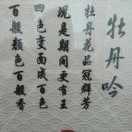 牡丹吟
牡丹花品冠群芳
况是期间更有王
四色变而成百色
百般颜色百般香